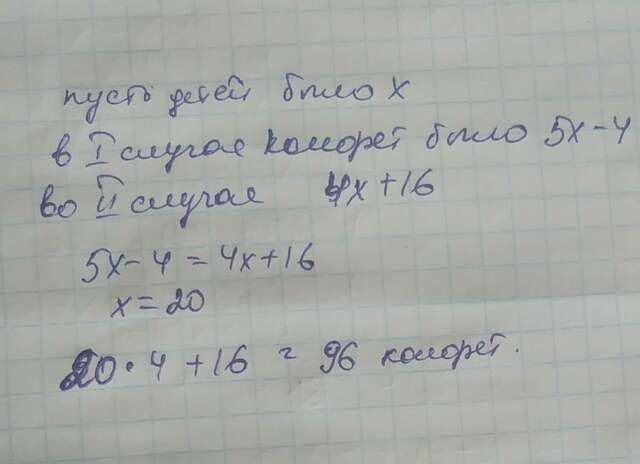 пусть детей было x
в I случае конфет было 5x-4
во II случае 4x+16
5x-4=4x+16
x=20
20·4+16=96 конфет.